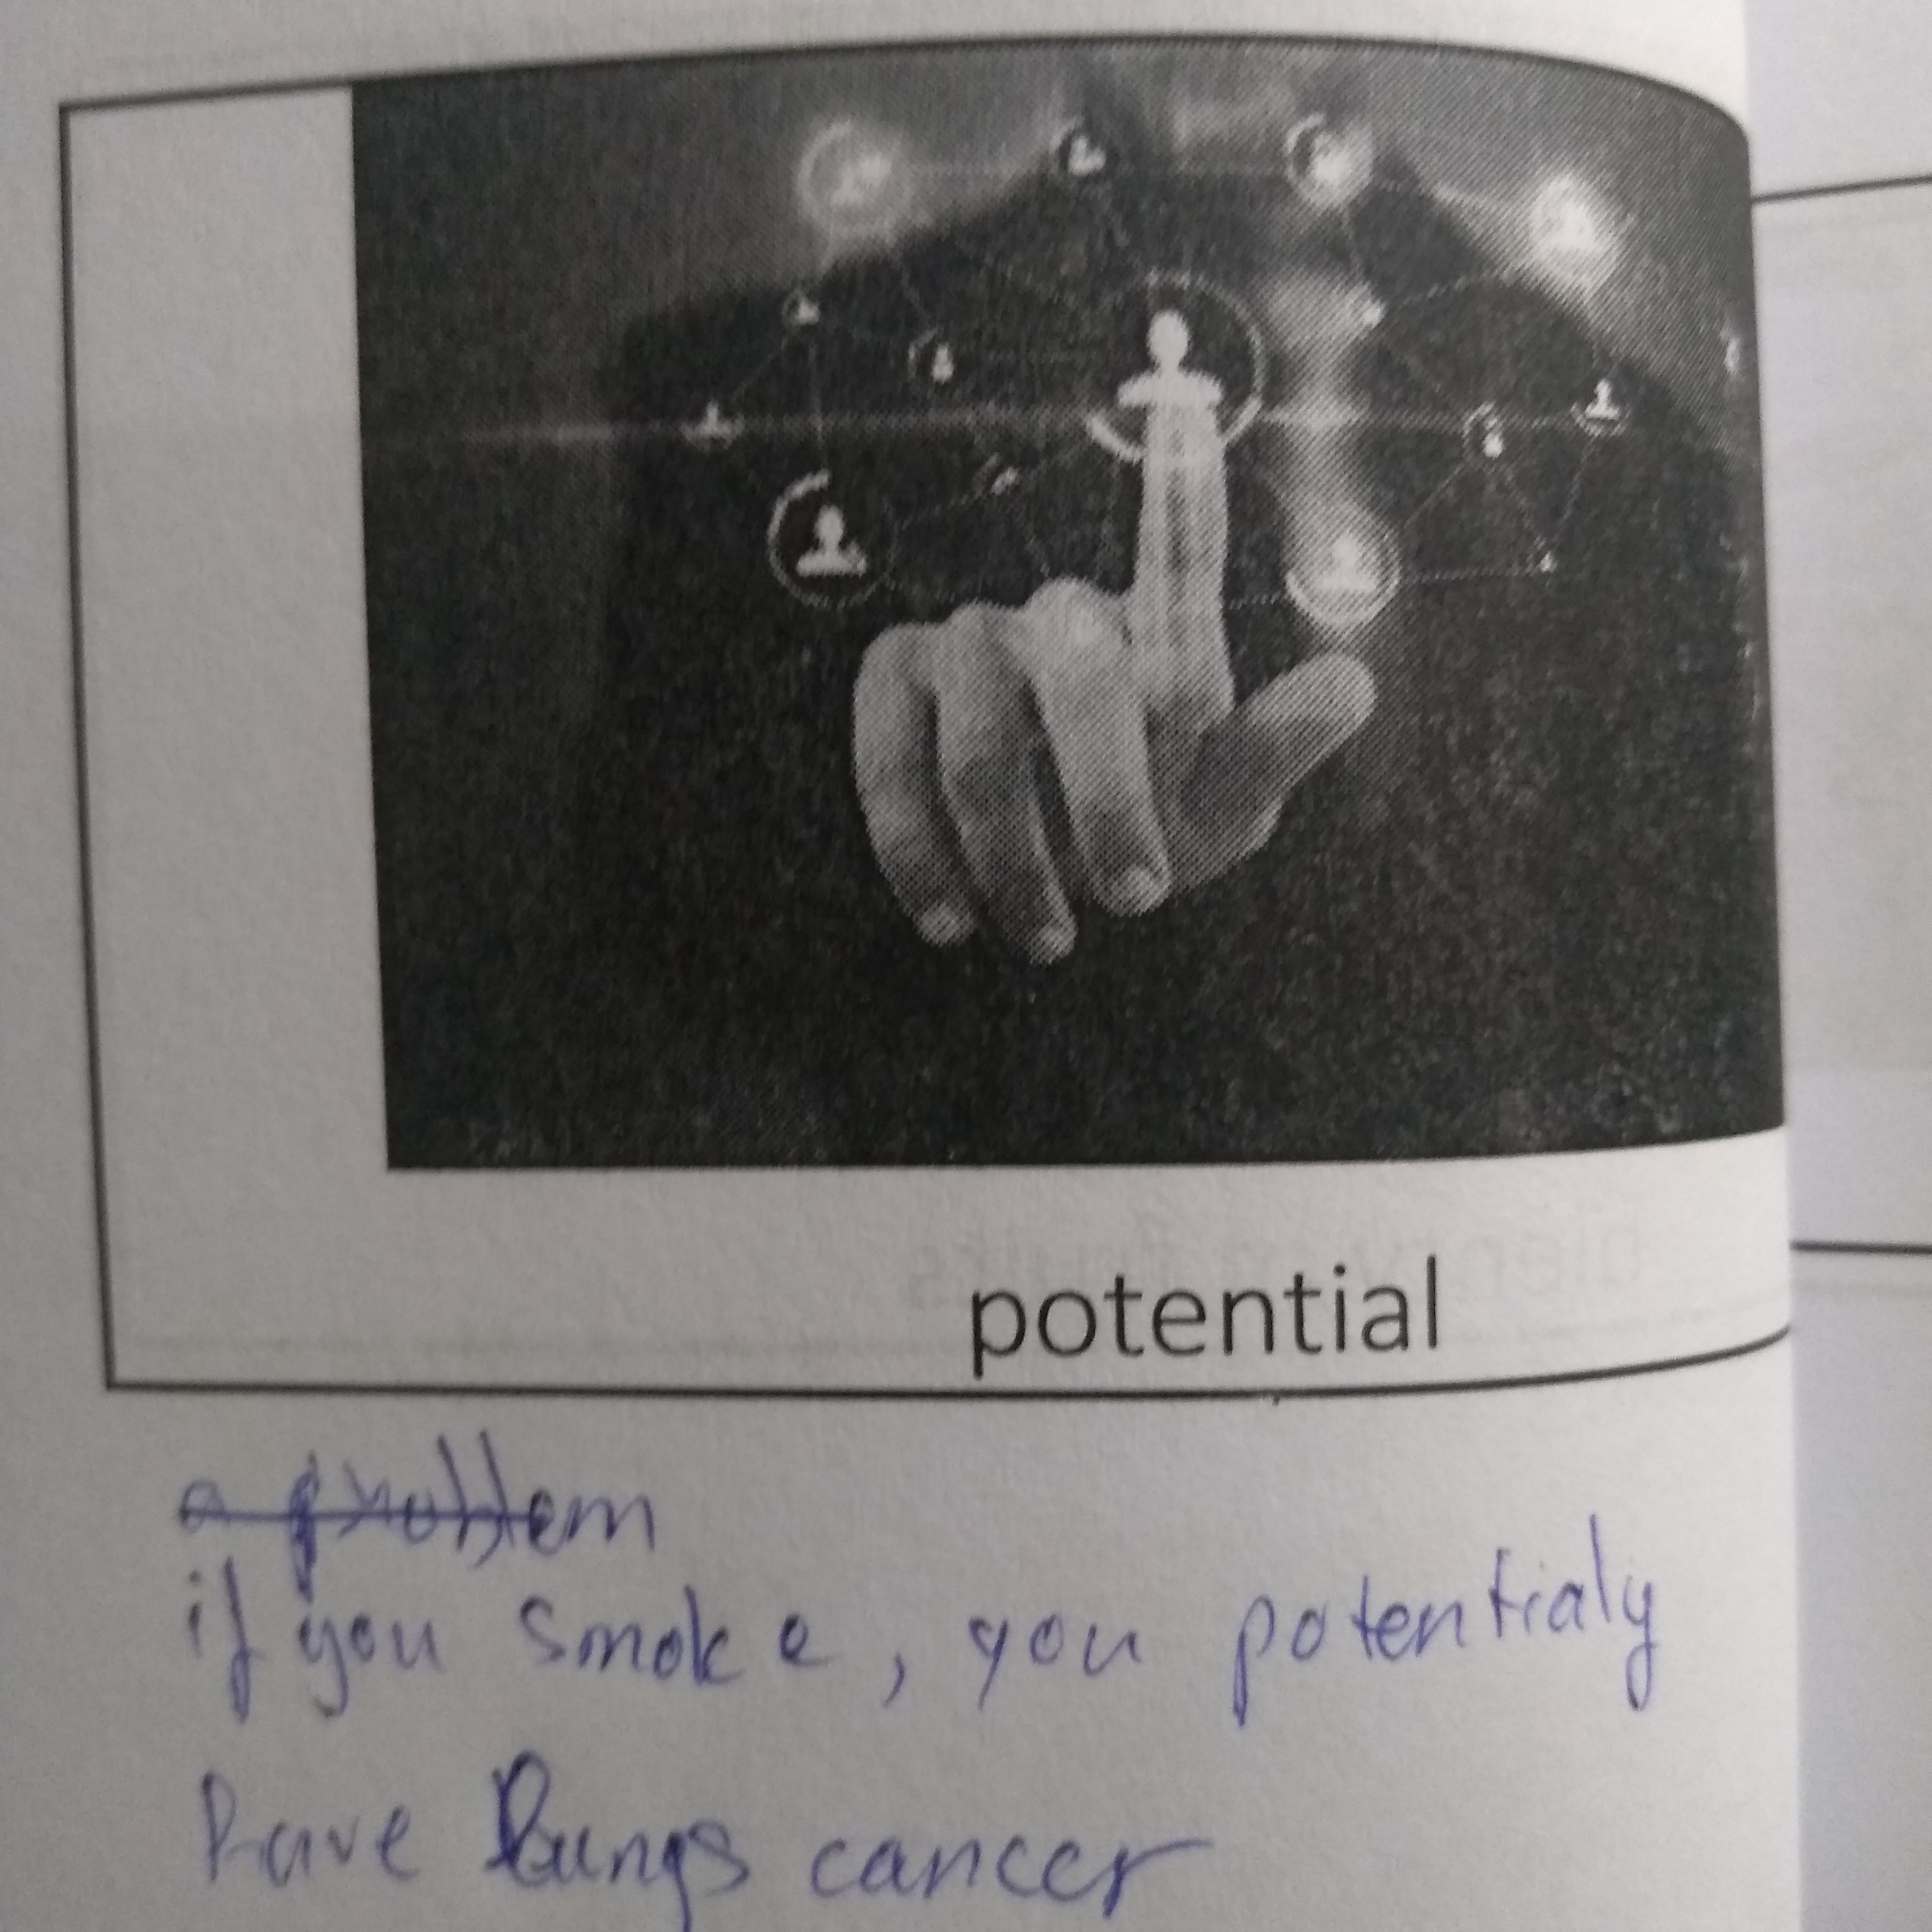 potential
a problem
if you smoke, you potentialy
have lungs cancer